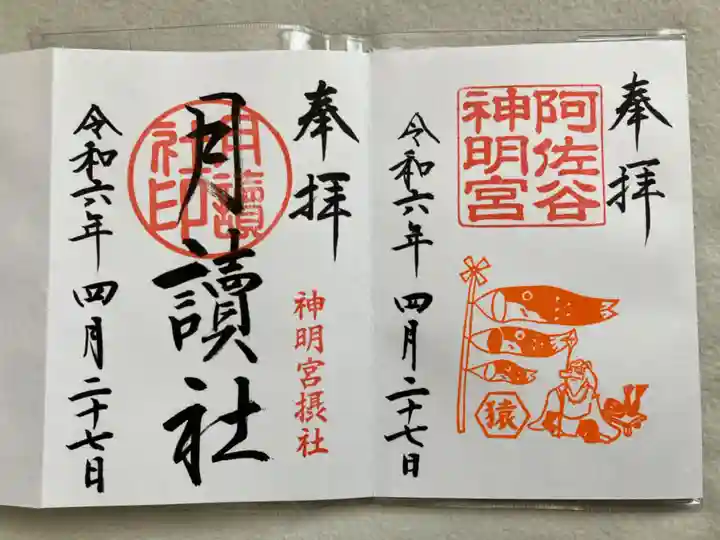 奉拝
阿佐谷
神明宮
猿
令和六年 四月二十七日
奉拝
神明宮摂社
月讀社
月讀
社印
令和六年 四月二十七日